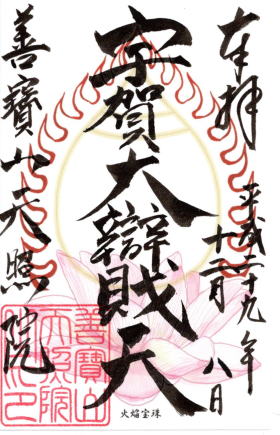 奉拝
平成二十九年
十二月八日
宇賀大辯財天
善寶山天照院
善寶山
天照院
火焔宝珠